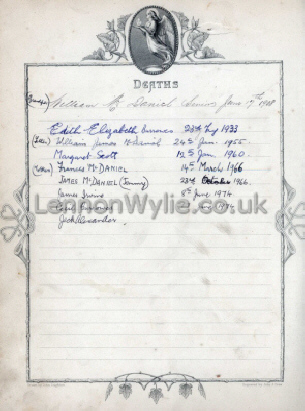 DEATHS
William Mc Daniel Senior June 17th 1908
Edith Elizabeth 23rd 1933
William James McDaniel 24th Jan. 1955.
Margaret Scott 12th Jan. 1960.
FRANCES McDANIEL 14th March 1966
JAMES McDANIEL (Jimmy) 23rd October 1966.
James 8th June 1974
1974
Jack Alexander
LentonWylie.co.uk